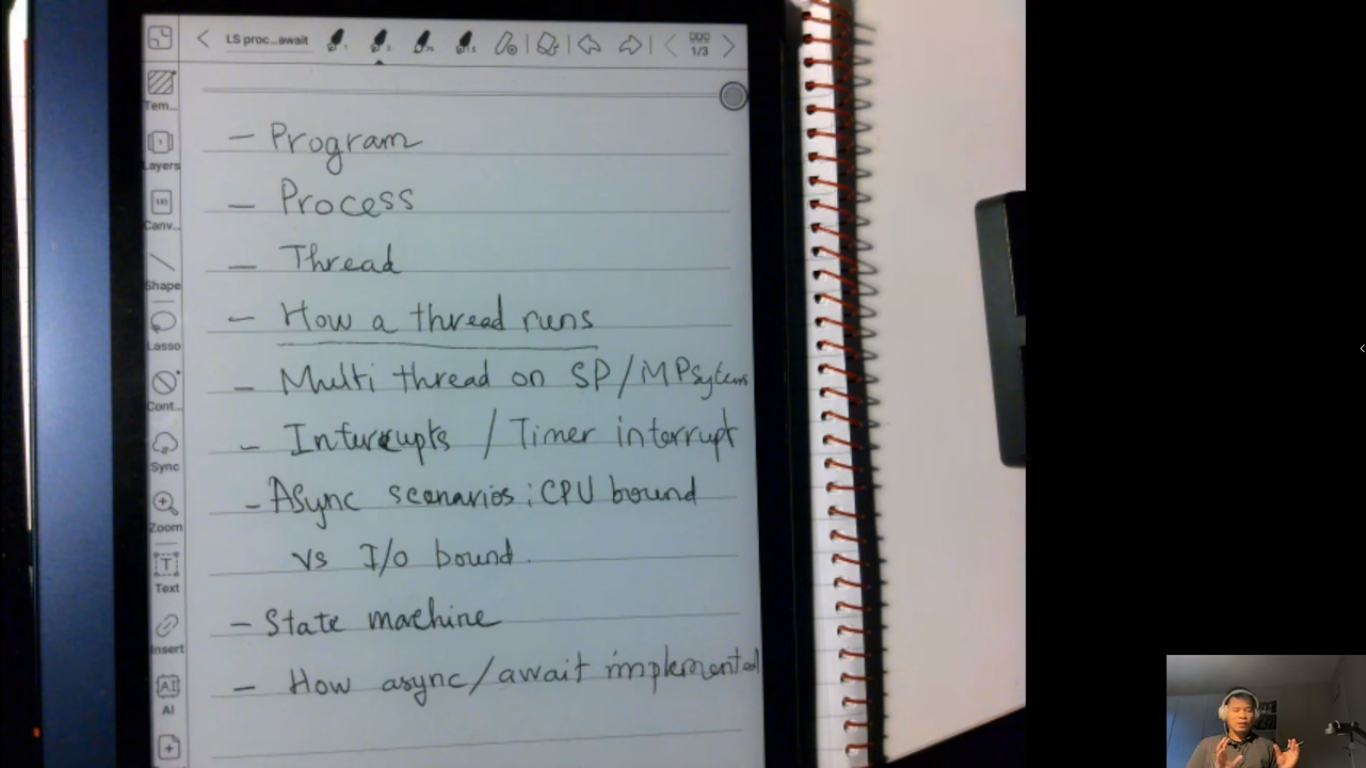 LS proc...await
1/3
Tem...
Layers
Canv...
Shape
Lasso
Cont...
Sync
Zoom
Text
Insert
AI
- Program
- Process
- Thread
- How a thread runs
- Multi thread on SP/MPSytems
- Interrupts / Timer interrupt
- Async scenarios: CPU bound
vs I/o bound.
- State machine
- How async/await implemented